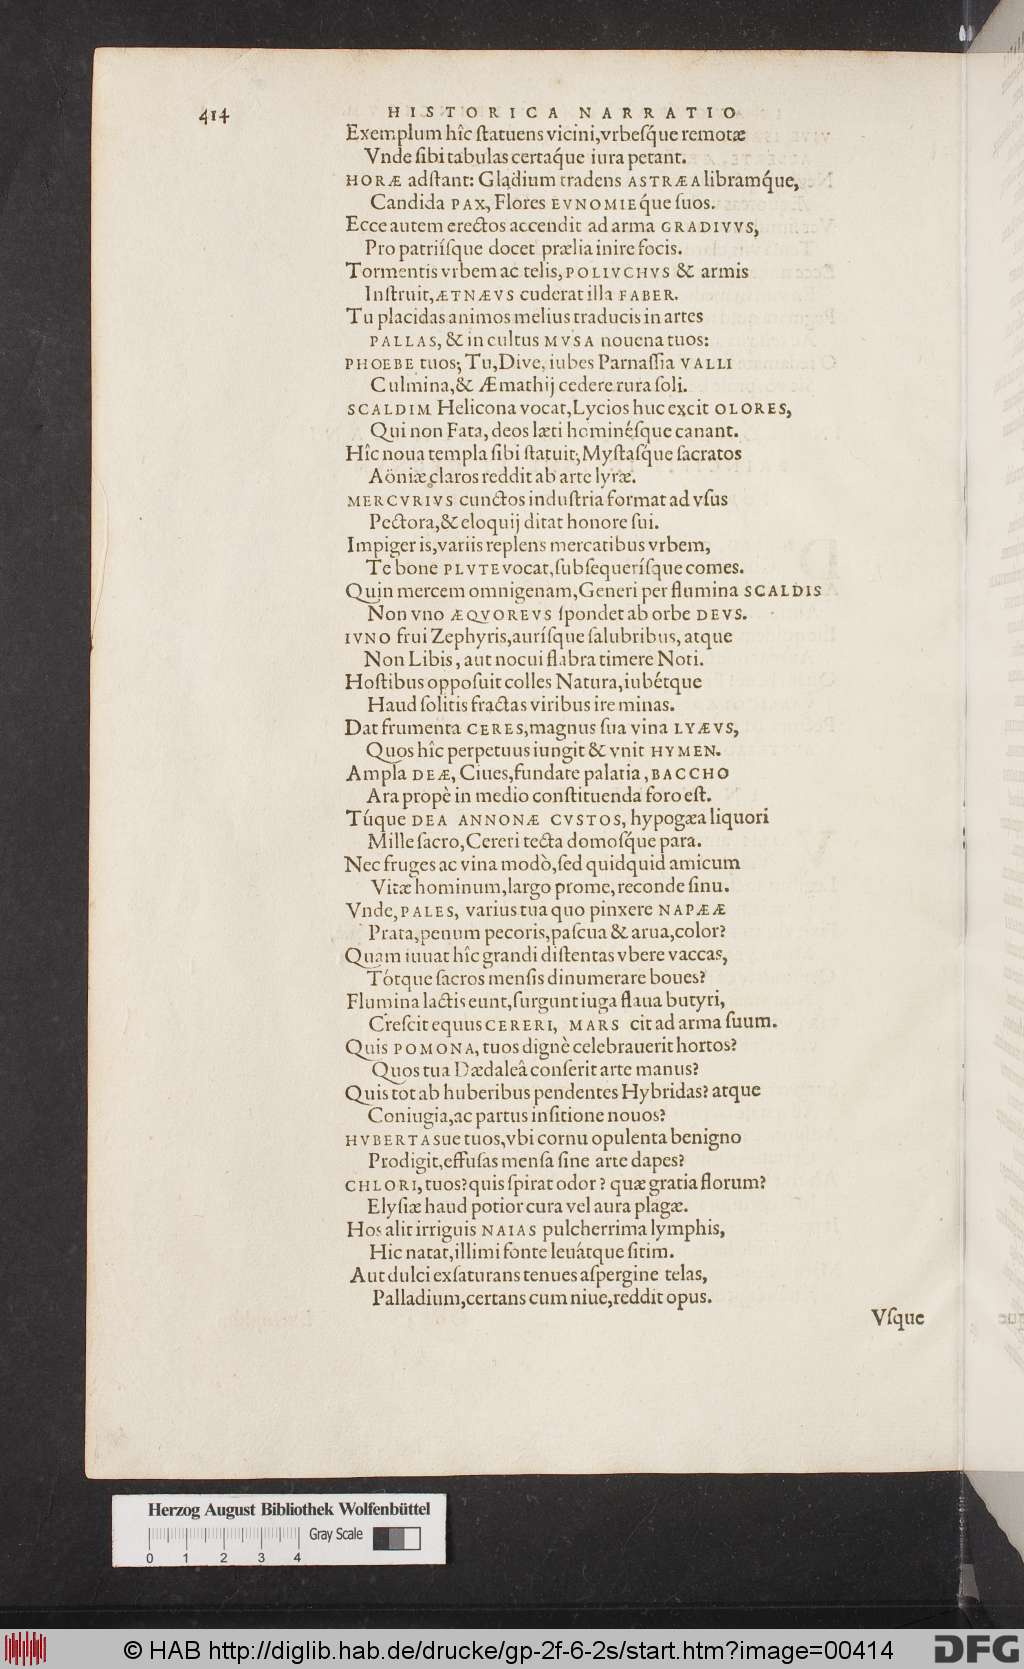 414 HISTORICA NARRATIO
Exemplum hîc ſtatuens vicini, vrbeſq́ue remotæ
Vnde ſibi tabulas certaq́ue iura petant.
HORÆ adſtant: Gladium tradens ASTRÆA libramq́ue,
Candida PAX, Flores EVNOMIE q́ue ſuos.
Ecce autem erectos accendit ad arma GRADIVVS,
Pro patriíſque docet prælia inire focis.
Tormentis vrbem ac telis, POLIVCHVS & armis
Inſtruit, ÆTNÆVS cuderat illa FABER.
Tu placidas animos melius traducis in artes
PALLAS, & in cultus MVSA nouena tuos:
PHOEBE tuos; Tu, Dive, iubes Parnaſſia VALLI
Culmina, & Æmathij cedere rura ſoli.
SCALDIM Helicona vocat, Lycios huc excit OLORES,
Qui non Fata, deos læti hominéſque canant.
Hîc noua templa ſibi ſtatuit; Myſtaſq́ue ſacratos
Aöniæ claros reddit ab arte lyræ.
MERCVRIVS cunctos induſtria format ad vſus
Pectora, & eloquij ditat honore ſui.
Impiger is, variis replens mercatibus vrbem,
Te bone PLVTE vocat, ſubſequeríſque comes.
Quin mercem omnigenam, Generi per flumina SCALDIS
Non vno ÆQVOREVS ſpondet ab orbe DEVS.
IVNO frui Zephyris, auríſque ſalubribus, atque
Non Libis, aut nocui flabra timere Noti.
Hoſtibus oppoſuit colles Natura, iubétque
Haud ſolitis fractas viribus ire minas.
Dat frumenta CERES, magnus ſua vina LYÆVS,
Quos hîc perpetuus iungit & vnit HYMEN.
Ampla DEÆ, Ciues, fundate palatia, BACCHO
Ara propè in medio conſtituenda foro eſt.
Túque DEA ANNONÆ CVSTOS, hypogæa liquori
Mille ſacro, Cereri tecta domoſq́ue para.
Nec fruges ac vina modò, ſed quidquid amicum
Vitæ hominum, largo prome, reconde ſinu.
Vnde, PALES, varius tua quo pinxere NAPÆÆ
Prata, penum pecoris, paſcua & arua, color?
Quam iuuat hîc grandi diſtentas vbere vaccas,
Tótque ſacros menſis dinumerare boues?
Flumina lactis eunt, ſurgunt iuga flaua butyri,
Creſcit equus CERERI, MARS cit ad arma ſuum.
Quis POMONA, tuos dignè celebrauerit hortos?
Quos tua Dædaleâ conſerit arte manus?
Quis tot ab huberibus pendentes Hybridas? atque
Coniugia, ac partus inſitione nouos?
HVBERTASue tuos, vbi cornu opulenta benigno
Prodigit, effuſas menſa ſine arte dapes?
CHLORI, tuos? quis ſpirat odor? quæ gratia florum?
Elyſiæ haud potior cura vel aura plagæ.
Hos alit irriguis NAIAS pulcherrima lymphis,
Hic natat, illimi fonte leuátque ſitim.
Aut dulci exſaturans tenues aſpergine telas,
Palladium, certans cum niue, reddit opus.
Vſque
Herzog August Bibliothek Wolfenbüttel
Gray Scale
0 1 2 3 4
© HAB http://diglib.hab.de/drucke/gp-2f-6-2s/start.htm?image=00414 DFG